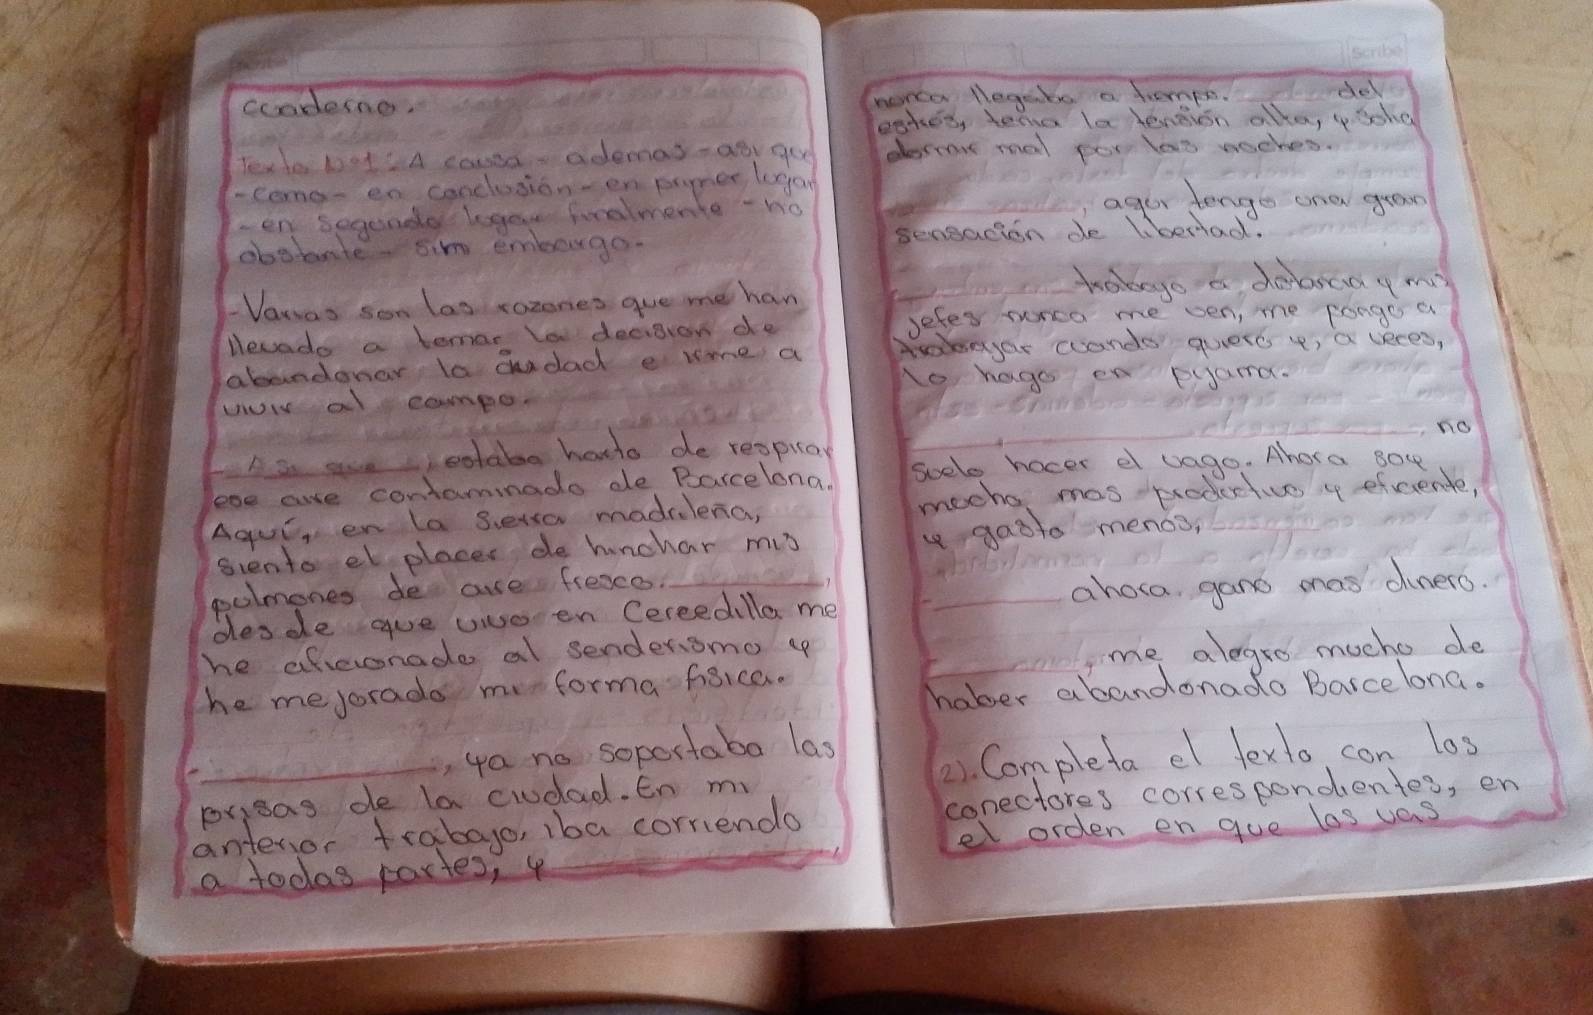 ccoaderno.
Texto N°1: A causa - ademas - asi que
- como - en conclusión - en primer lugar
- en segundo lugar finalmente - no
obstante - sim embargo.
- Varias son las razones que me han
llevado a tomar la decisión de
abandonar la ciudad e irme a
vivir al campo.
- Asi que, estaba harto de respirar
ese aire contaminado de Barcelona.
Aquí, en la Sierra madrileña,
siento el placer de hinchar mis
pulmones de aire fresco. ,
desde que vivo en Cereedilla me
he aficionado al senderismo y
he mejorado mi forma física.
- , ya no soportaba las
prisas de la ciudad. En mi
anterior trabajo, iba corriendo
a todas partes, y ,
nunca llegaba a tiempo. del
estrés, tenia la tensión alta, y solia
dormir mal por las noches.
, aqui tengo una gran
sensación de libertad.
trabajo a distancia y mis
jefes nunca me ven, me pongo a
trabajar cuando quiero y, a veces,
lo hago en pijama.
, no
suelo hacer el vago. Ahora soy
mucho mas productivo y eficiente,
y gasto menos,
- ahora gano mas dinero.
- , me alegro mucho de
haber abandonado Barcelona.
2). Completa el texto con los
conectores correspondientes, en
el orden en que los vas
scribe